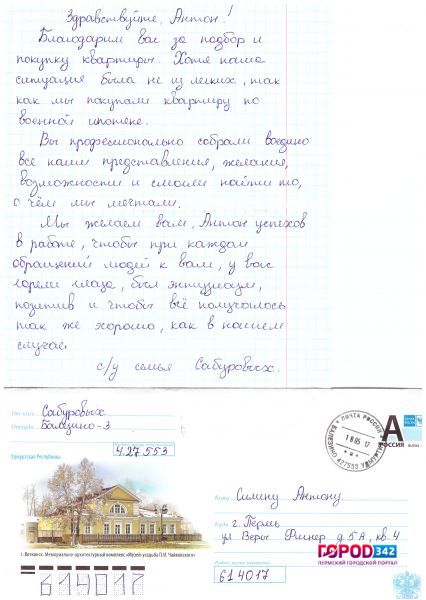 Здравствуйте, Антон!
Благодарим вас за подбор и
покупку квартиры. Хотя наша
ситуация была не из легких, так
как мы покупали квартиру по
военной ипотеке.
Вы профессионально собрали воедино
все наши представления, желания,
возможности и смогли найти то,
о чём мы мечтали.
Мы желаем вам, Антон успехов
в работе, чтобы при каждом
обращений людей к вам, у вас
горели глаза, был энтузиазм,
позитив и чтобы всё получалось
так же хорошо, как в нашем
случае.
с/у семья Сабуровых.
От кого Сабуровых
Откуда Балезино-3
427553
Удмуртская Республика
г. Воткинск. Мемориально-архитектурный комплекс «Музей-усадьба П.И. Чайковского»
614017
ПОЧТА РОССИИ
18 05 17
БАЛЕЗИНО 427553
А
Кому Силину Антону
Куда г. Пермь
ул. Веры Фигнер д. 5А, кв. 4
ГОРОД342
ПЕРМСКИЙ ГОРОДСКОЙ ПОРТАЛ
614017